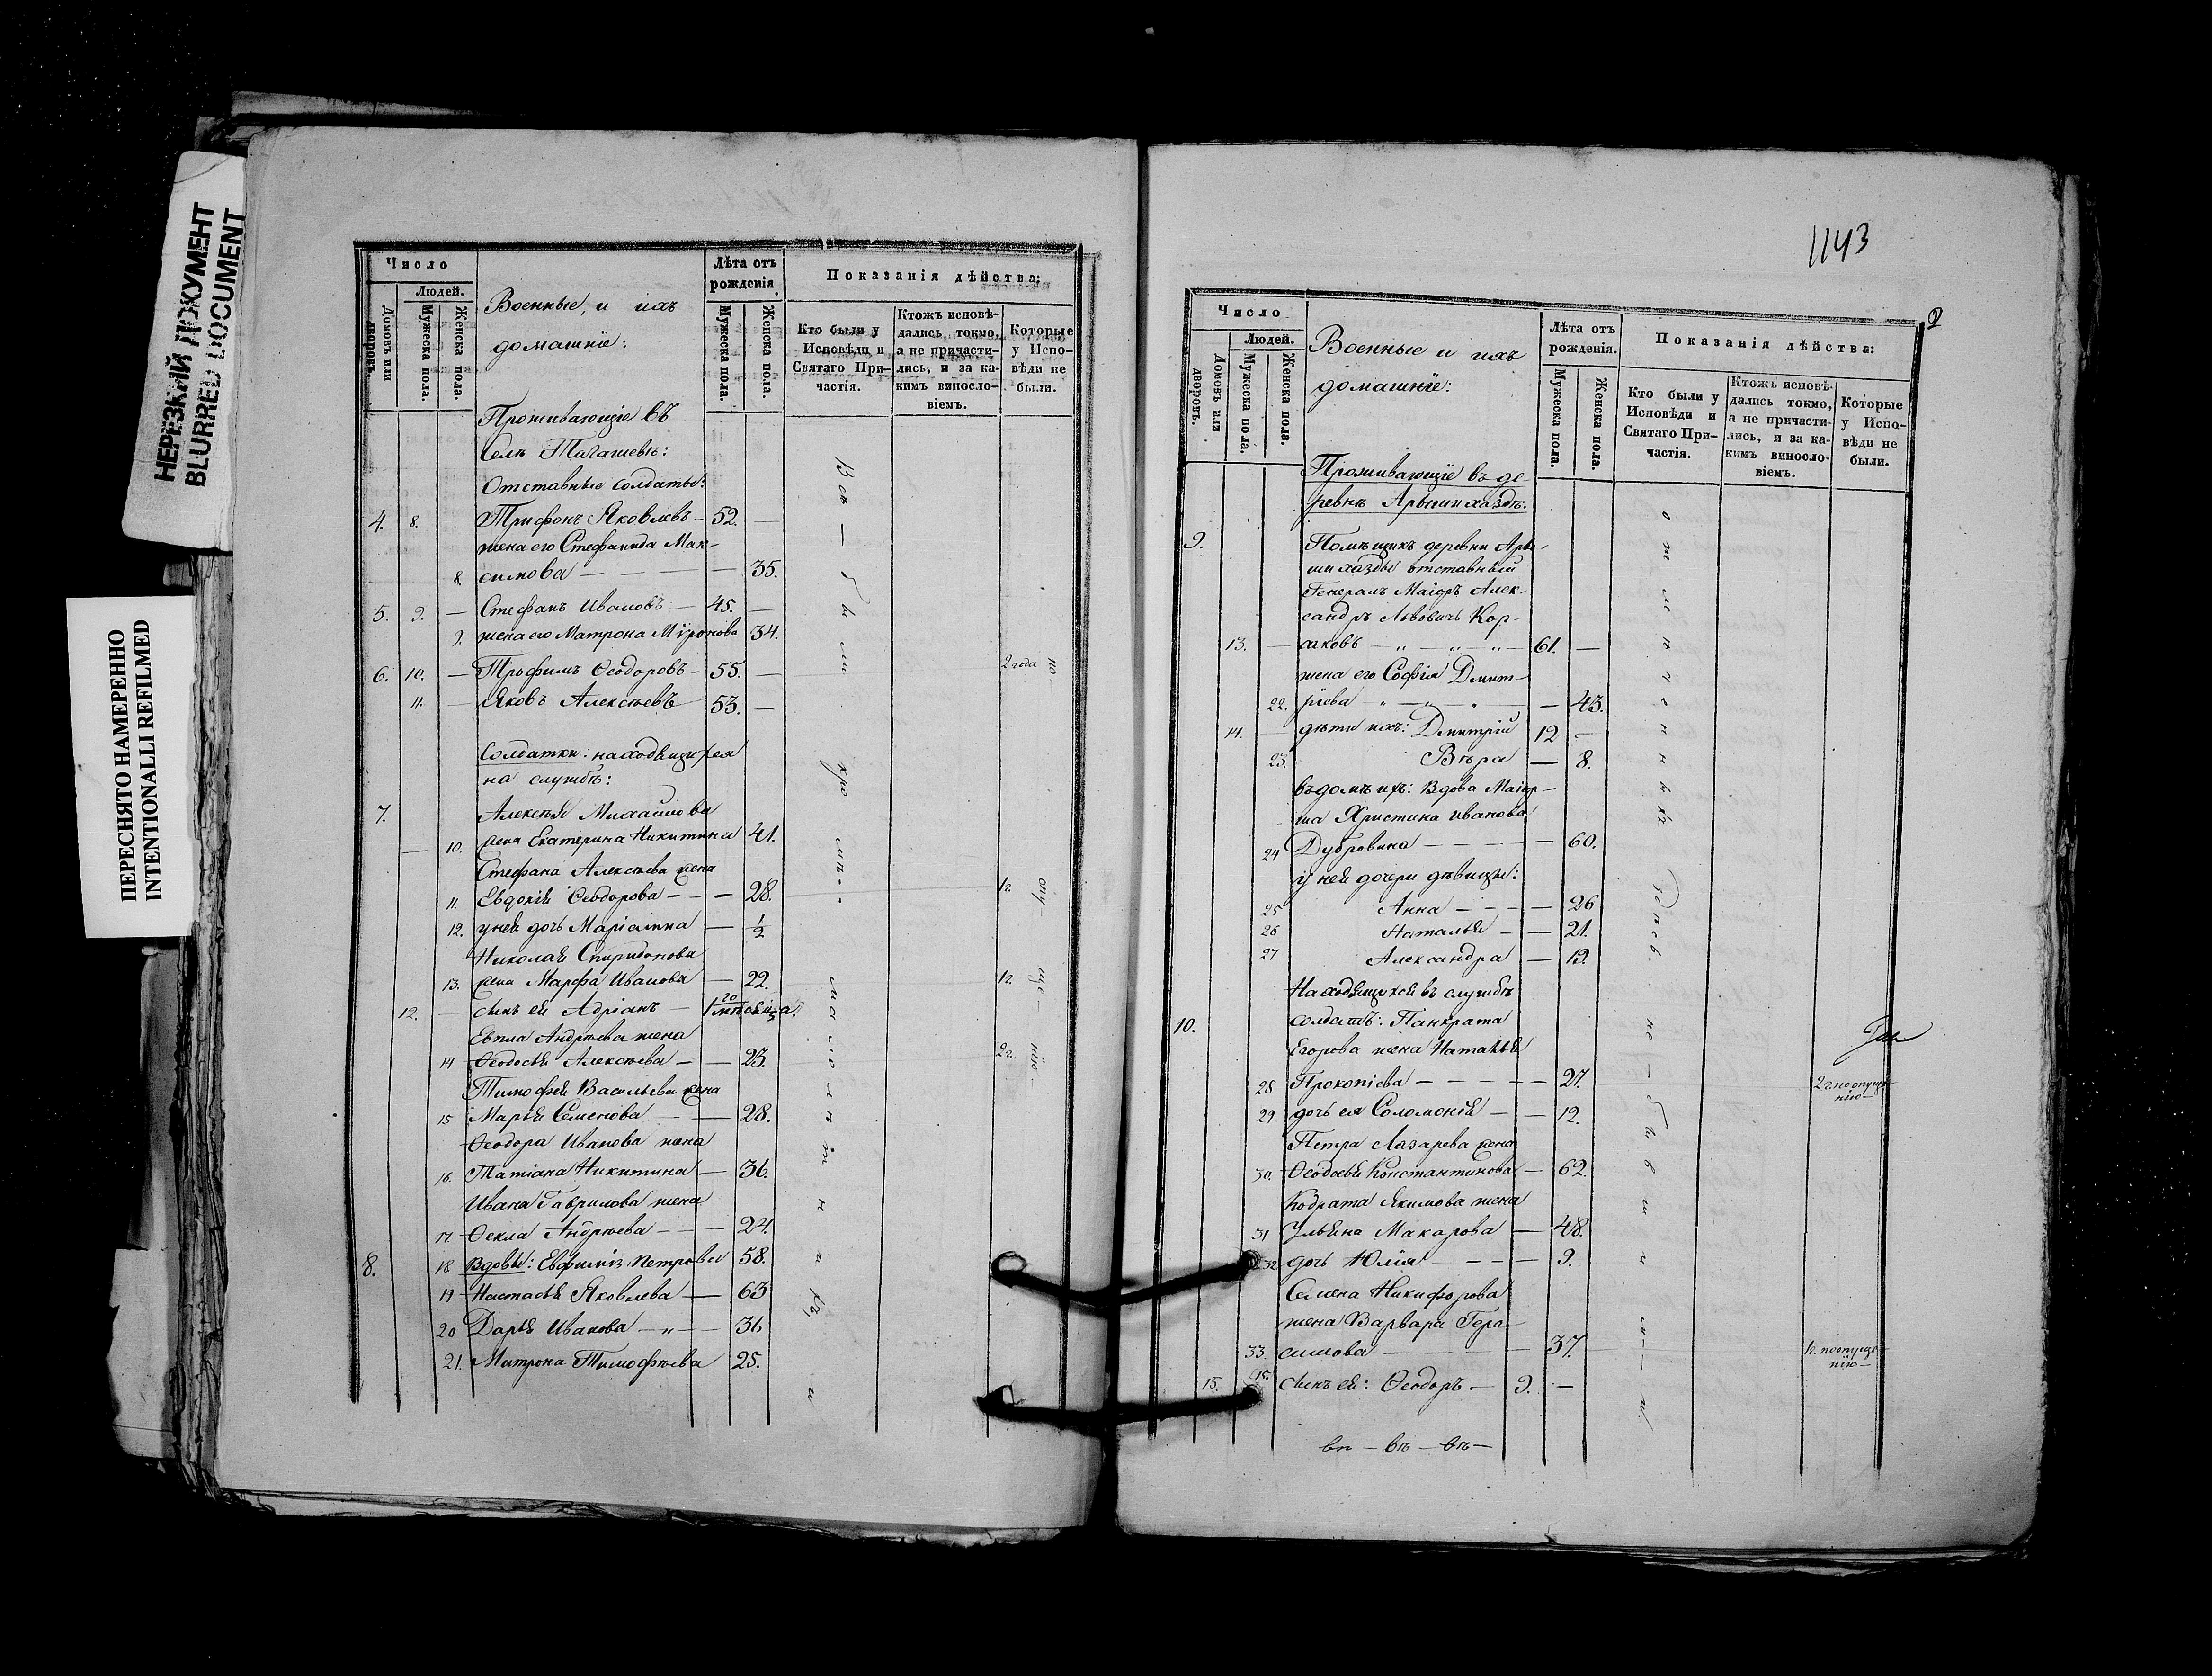 НЕРЕЗКИЙ ДОКУМЕНТ
BLURRED DOCUMENT
ПЕРЕСНЯТО НАМЕРЕННО
INTENTIONALLI REFILMED
Число
Людей.
Домовъ или дворовъ.
Мужеска пола.
Женска пола.
Военные, и ихъ
домашніе:
Лѣта отъ
рожденія
Мужеска пола.
Женска пола.
Показанія дѣйства:
Кто были у
Исповѣди и
Святаго При-
частія.
Ктожъ исповѣ-
дались токмо,
а не причасти-
лись, и за ка-
кимъ винослo-
віемъ.
Которые
у Испо-
вѣди не
были.
Проживающіе въ
Отставные солдаты:
4. 8. Трифонъ Яковлевъ — 52. —
жена его Стефанида Мак-
8. симова — — — — 35.
5. 9. — Стефанъ Ивановъ — 45. —
9. жена его Матрона Мѵронова 34.
6. 10. — Трофимъ Ѳеодоровъ — 55. — 2 года
11. — Яковъ Алексѣевъ 53. —
Солдатки: находящихся
на службѣ:
7. Алексѣя Михайлова
10. жена Екатерина Никитина 41.
Стефана Алексѣева жена
11. Евдокія Ѳеодорова — — — 28. 1г.
12. у нея дочь Маріамна — 1/2
Николая Спиридонова
13. жена Марфа Иванова — 22. 1г.
12. — сынъ ея Адріанъ —
Евпла Андрѣева жена
14 Ѳеодосья Алексѣева — — 23. 2г.
Тимофея Васильева жена
15 Марья Семенова — — 28.
Ѳеодора Иванова жена
16. Татіана Никитина — 36.
Ивана Гаврилова жена
17. Ѳекла Андрѣева — — — 24.
8. 18 Вдовы: Евфимія Петрова 58.
19 Настасья Яковлева — 63
20 Дарья Иванова —„— — 36
21. Матрона Тимофѣева 25.
1143
2
Число
Людей.
Домовъ или дворовъ.
Мужеска пола.
Женска пола.
Военные и ихъ
домашніе:
Лѣта отъ
рожденія.
Мужеска пола.
Женска пола.
Показанія дѣйства:
Кто были у
Исповѣди и
Святаго При-
частія.
Ктожъ исповѣ-
дались токмо,
а не причасти-
лись, и за ка-
кимъ винослo-
віемъ.
Которые
у Испо-
вѣди не
были.
Проживающіе въ де-
ревнѣ Арышхаздѣ.
9. Помѣщикъ деревни Ары-
шхазды отставный
Генералъ Маіоръ Алек-
сандръ Львовичъ Кор-
13. — саковъ — „ — „ — „ — 61. —
жена его Софія Дмит-
22. ріева — „ — „ — „ — — 43.
14. — дѣти ихъ: Дмитрій 12 —
23. Вѣра — 8.
въ домѣ ихъ: Вдова Маіор-
ша Христина Иванова
24 Дубровина — — — — — 60.
у нея дочери дѣвицы:
25 Анна — — — — 26
26 Наталья — — 21.
27 Александра — 19.
Находящихся въ службѣ
10. солдатъ: Панкрата
Егорова жена Наталья
28 Прокопіева — — — — — 27. 2 г. по опуще-
нію —
29 дочь ея Соломонія — — 12.
Петра Лазарева жена
30. Ѳеодосья Константинова — 62.
Кодрата Якимова жена
31 Ульяна Макарова — 48.
32 дочь Юлія — — — 9.
Семена Никифорова
жена Варвара Гера-
33. симова — — 37. 1г. по опуще-
нію —
15. сынъ ея: Ѳеодоръ — 9. —